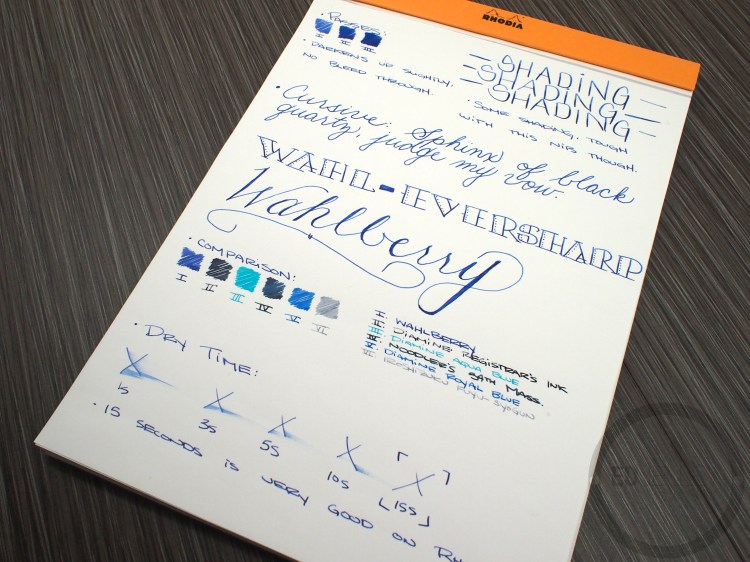 RHODIA
• PASSES:
I II III
• DARKENS UP SLIGHTLY,
NO BLEED THROUGH.
SHADING
SHADING
SHADING
• SOME SHADING, TOUGH
WITH THIS NIB THOUGH.
• Cursive: Sphinx of black
quartz, judge my vow.
WAHL-EVERSHARP
Wahlberry
• COMPARISON:
I II III IV V VI
I: WAHLBERRY
II: DIAMINE REGISTRAR'S INK
III: DIAMINE AQUA BLUE
IV: NOODLER'S 54TH MASS.
V: DIAMINE ROYAL BLUE
VI: IROSHIZUKU FUYU-SYOGUN
• DRY TIME:
X X X X X
1s 3s 5s 10s 15s
• 15 SECONDS IS VERY GOOD ON